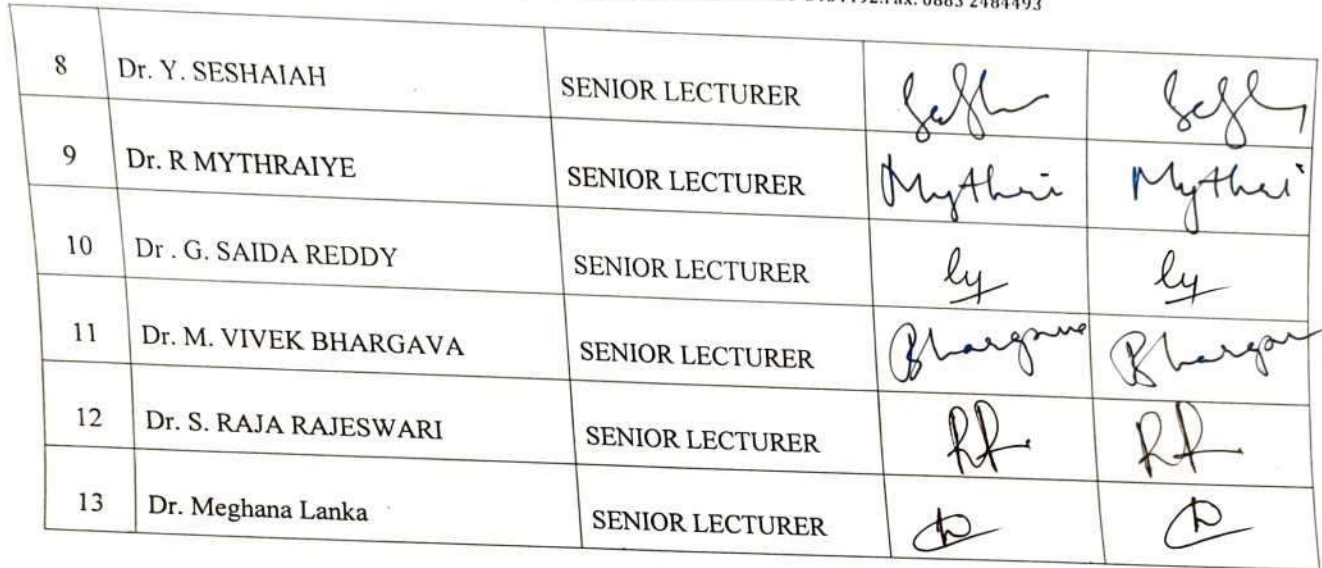 Fax: 0883 2484493
8 Dr. Y. SESHAIAH SENIOR LECTURER
9 Dr. R MYTHRAIYE SENIOR LECTURER Mythri Mythri
10 Dr . G. SAIDA REDDY SENIOR LECTURER
11 Dr. M. VIVEK BHARGAVA SENIOR LECTURER Bhargava Bhargav
12 Dr. S. RAJA RAJESWARI SENIOR LECTURER
13 Dr. Meghana Lanka SENIOR LECTURER